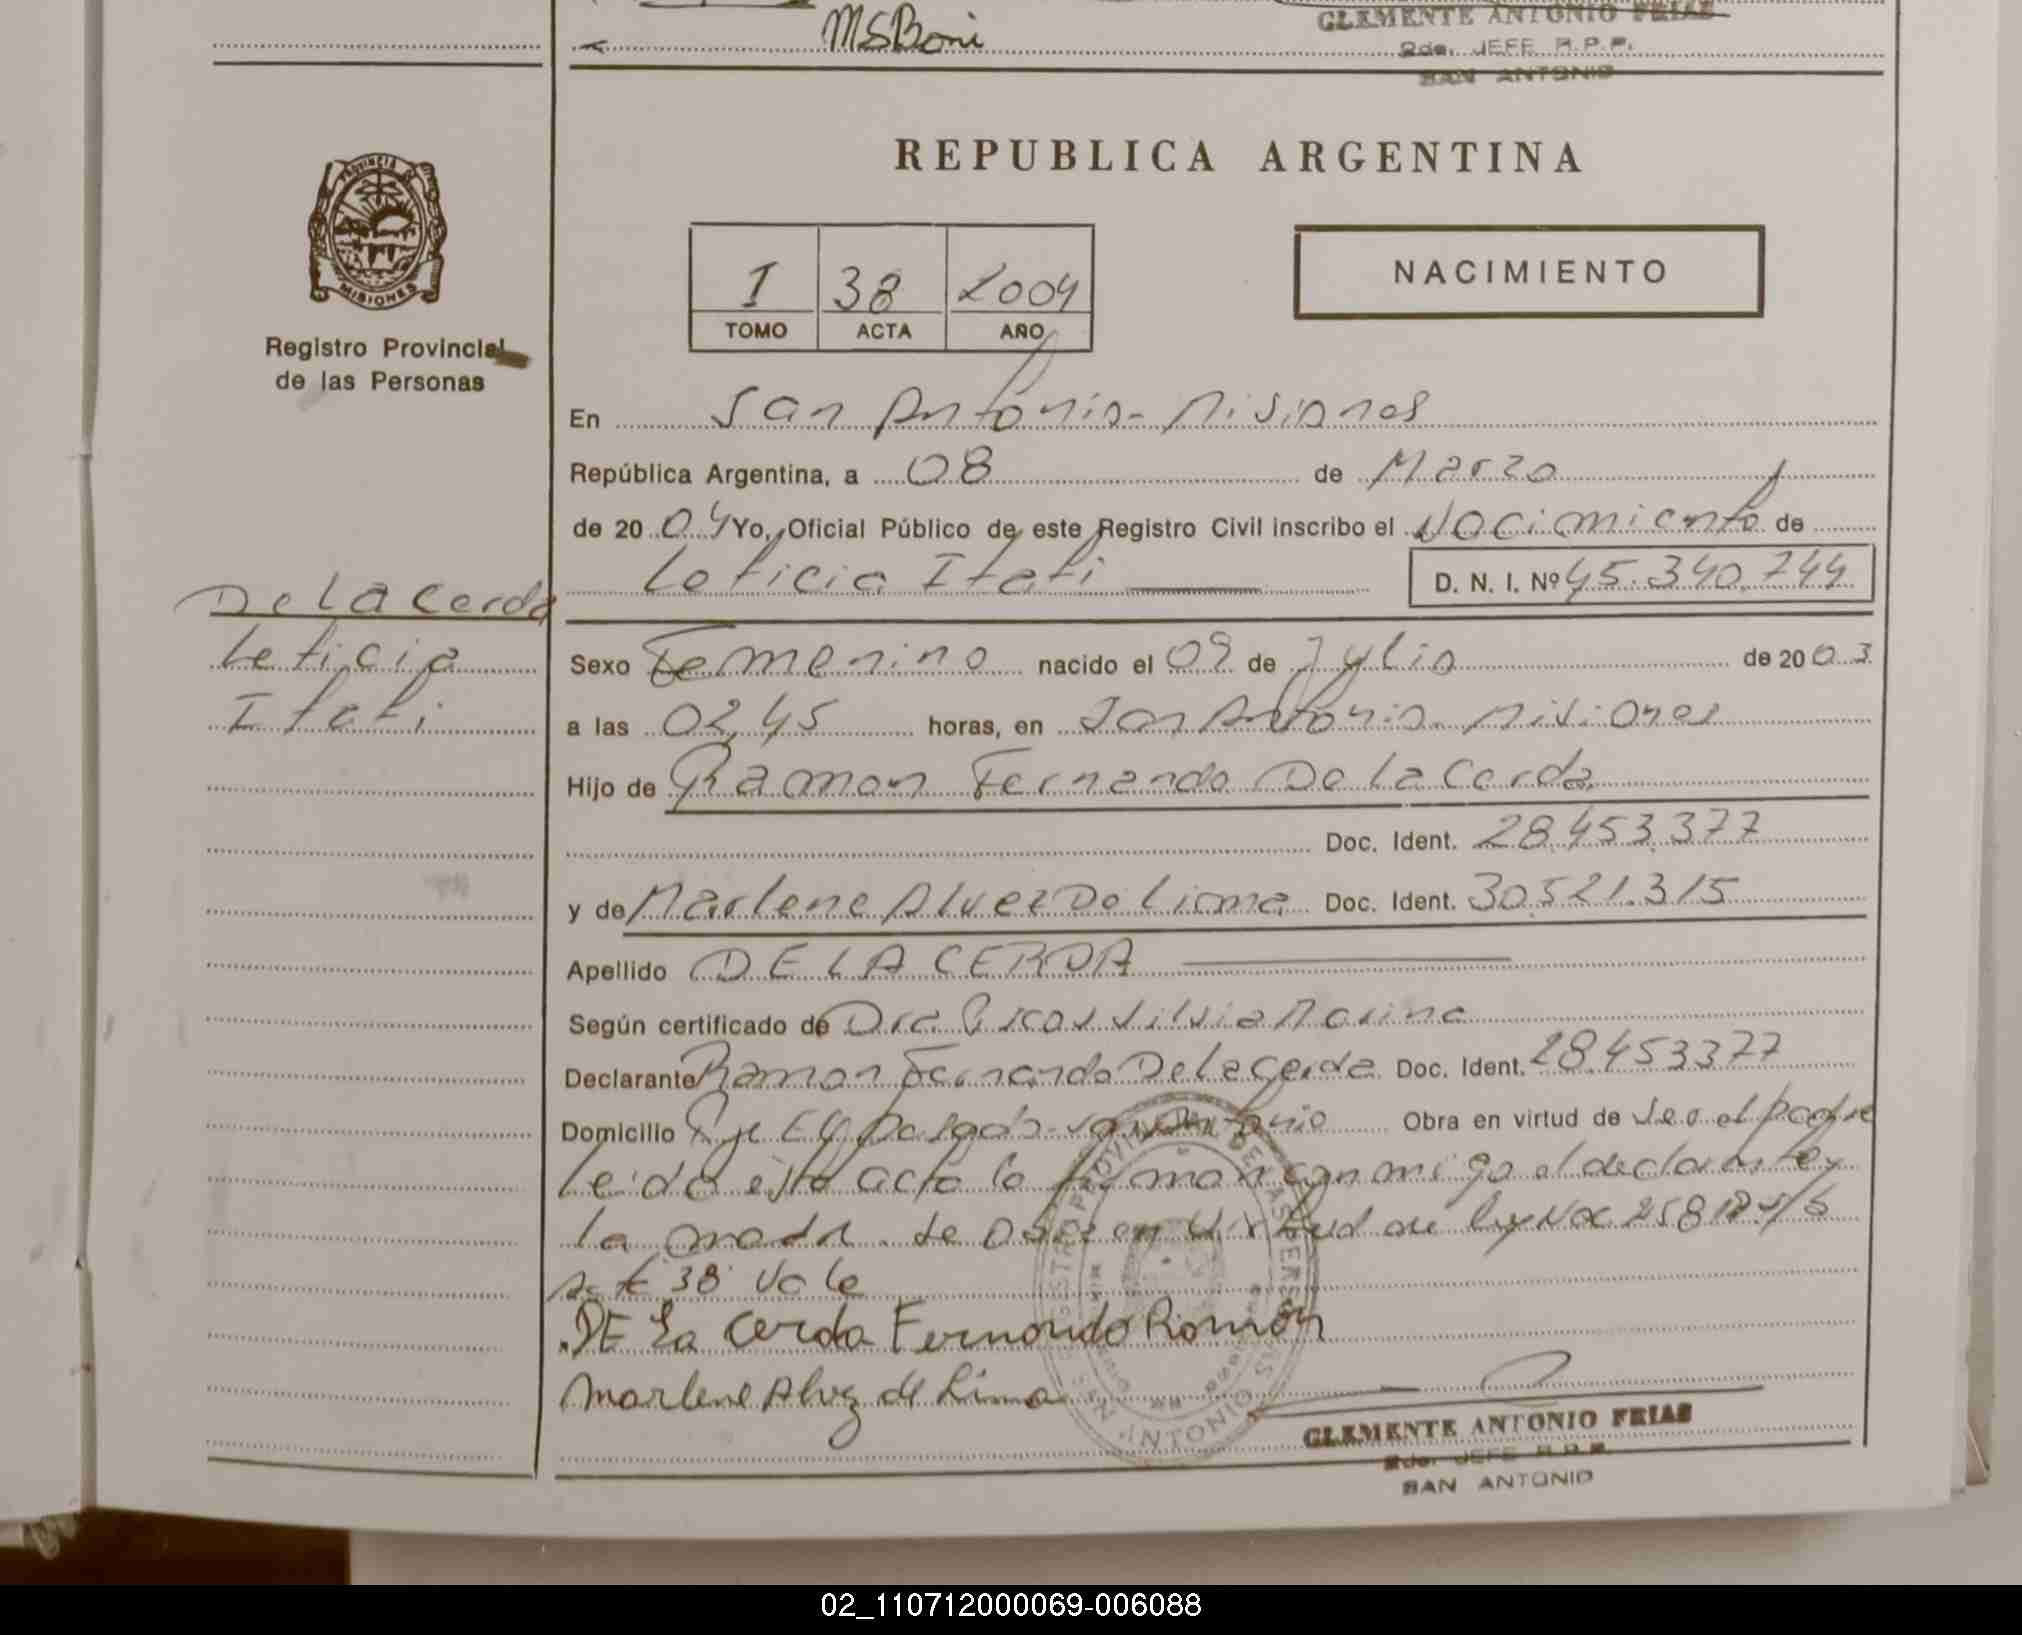 MSBoni
CLEMENTE ANTONIO FRIAS
2do. JEFE R.P.P.
SAN ANTONIO
PROVINCIA DE
MISIONES
Registro Provincial
de las Personas
REPUBLICA ARGENTINA
I 38 2004
TOMO ACTA AÑO
NACIMIENTO
En San Antonio - Misiones
República Argentina, a 08 de Marzo
de 20 04 Yo, Oficial Público de este Registro Civil inscribo el Nacimiento de
Leticia Itati D. N. I. Nº 45.340.744
De La Cerda
Leticia
Itati
Sexo Femenino nacido el 09 de Julio de 20 03
a las 02,45 horas, en San Antonio - Misiones
Hijo de Ramon Fernando De La Cerda
Doc. Ident. 28.453.377
y de Marlene Alvez De Lima Doc. Ident. 30.521.315
Apellido DE LA CERDA
Según certificado de Dra Silvia Marina
Declarante Ramon Fernando De La Cerda Doc. Ident. 28.453377
Domicilio San Antonio Obra en virtud de Ser el padre
Leida esta acta la firman conmigo el declarante y
la madre. Se en virtud de ley
38 Vale
DE La Cerda Fernando Ramón
Marlene Alvez de Lima
CLEMENTE ANTONIO FRIAS
2do. JEFE R.P.P.
SAN ANTONIO
02_110712000069-006088